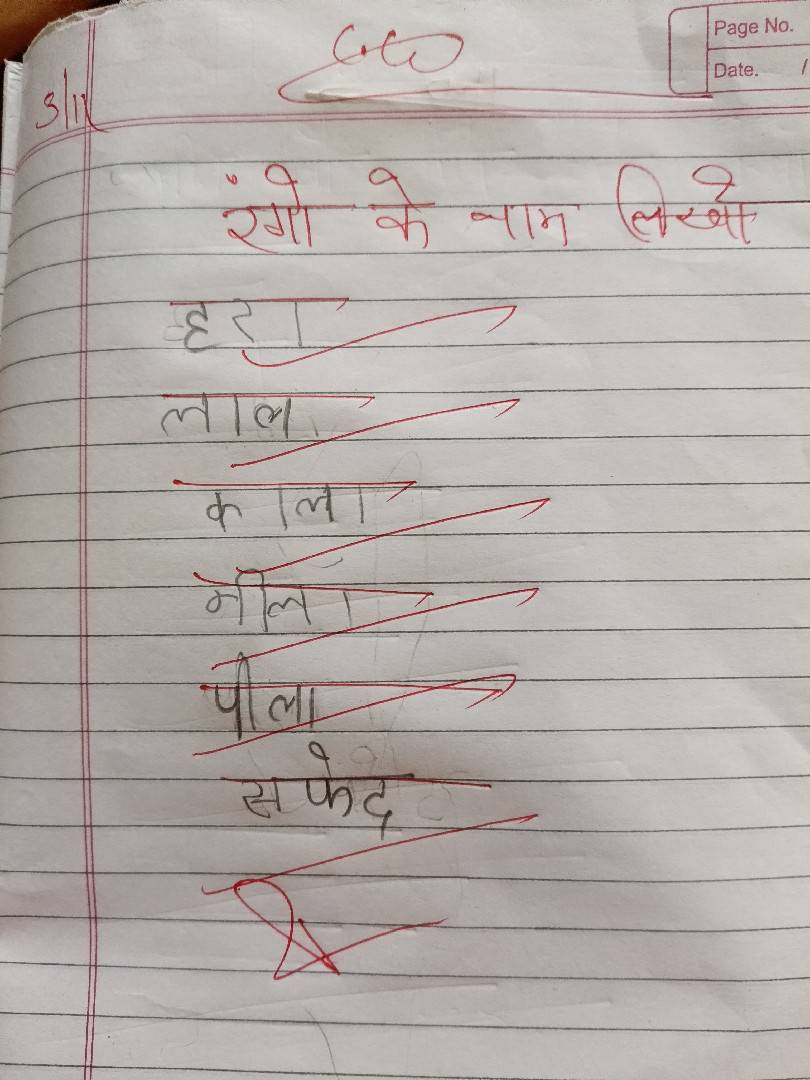 Page No.
Date.
3/11
रंगो के नाम लिखो
हरा
लाल
काला
नीला
पीला
सफेद